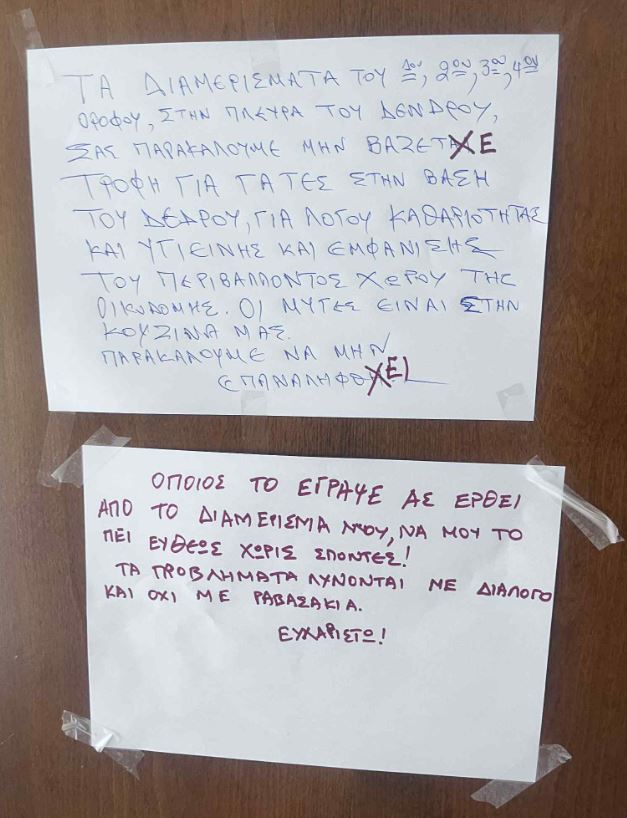 ΤΑ ΔΙΑΜΕΡΙΣΜΑΤΑ ΤΟΥ 1ου, 2ου, 3ου, 4ου
ΟΡΟΦΟΥ, ΣΤΗΝ ΠΛΕΥΡΑ ΤΟΥ ΔΕΝΔΡΟΥ,
ΣΑΣ ΠΑΡΑΚΑΛΟΥΜΕ ΜΗΝ ΒΑΖΕΤΑΧΕ
ΤΡΟΦΗ ΓΙΑ ΓΑΤΕΣ ΣΤΗΝ ΒΑΣΗ
ΤΟΥ ΔΕΔΡΟΥ, ΓΙΑ ΛΟΓΟΥ ΚΑΘΑΡΙΟΤΗΤΑΣ
ΚΑΙ ΥΓΙΕΙΝΗΣ ΚΑΙ ΕΜΦΑΝΙΣΗΣ
ΤΟΥ ΠΕΡΙΒΑΛΛΟΝΤΟΣ ΧΩΡΟΥ ΤΗΣ
ΟΙΚΩΔΟΜΗΣ. ΟΙ ΜΥΓΕΣ ΕΙΝΑΙ ΣΤΗΝ
ΚΟΥΖΙΝΑ ΜΑΣ.
ΠΑΡΑΚΑΛΟΥΜΕ ΝΑ ΜΗΝ
ΕΠΑΝΑΛΗΦΘΧΕΙ
ΟΠΟΙΟΣ ΤΟ ΕΓΡΑΨΕ ΑΣ ΕΡΘΕΙ
ΑΠΟ ΤΟ ΔΙΑΜΕΡΙΣΜΑ ΜΟΥ, ΝΑ ΜΟΥ ΤΟ
ΠΕΙ ΕΥΘΕΩΣ ΧΩΡΙΣ ΣΠΟΝΤΕΣ!
ΤΑ ΠΡΟΒΛΗΜΑΤΑ ΛΥΝΟΝΤΑΙ ΜΕ ΔΙΑΛΟΓΟ
ΚΑΙ ΟΧΙ ΜΕ ΡΑΒΑΣΑΚΙΑ.
ΕΥΧΑΡΙΣΤΩ!